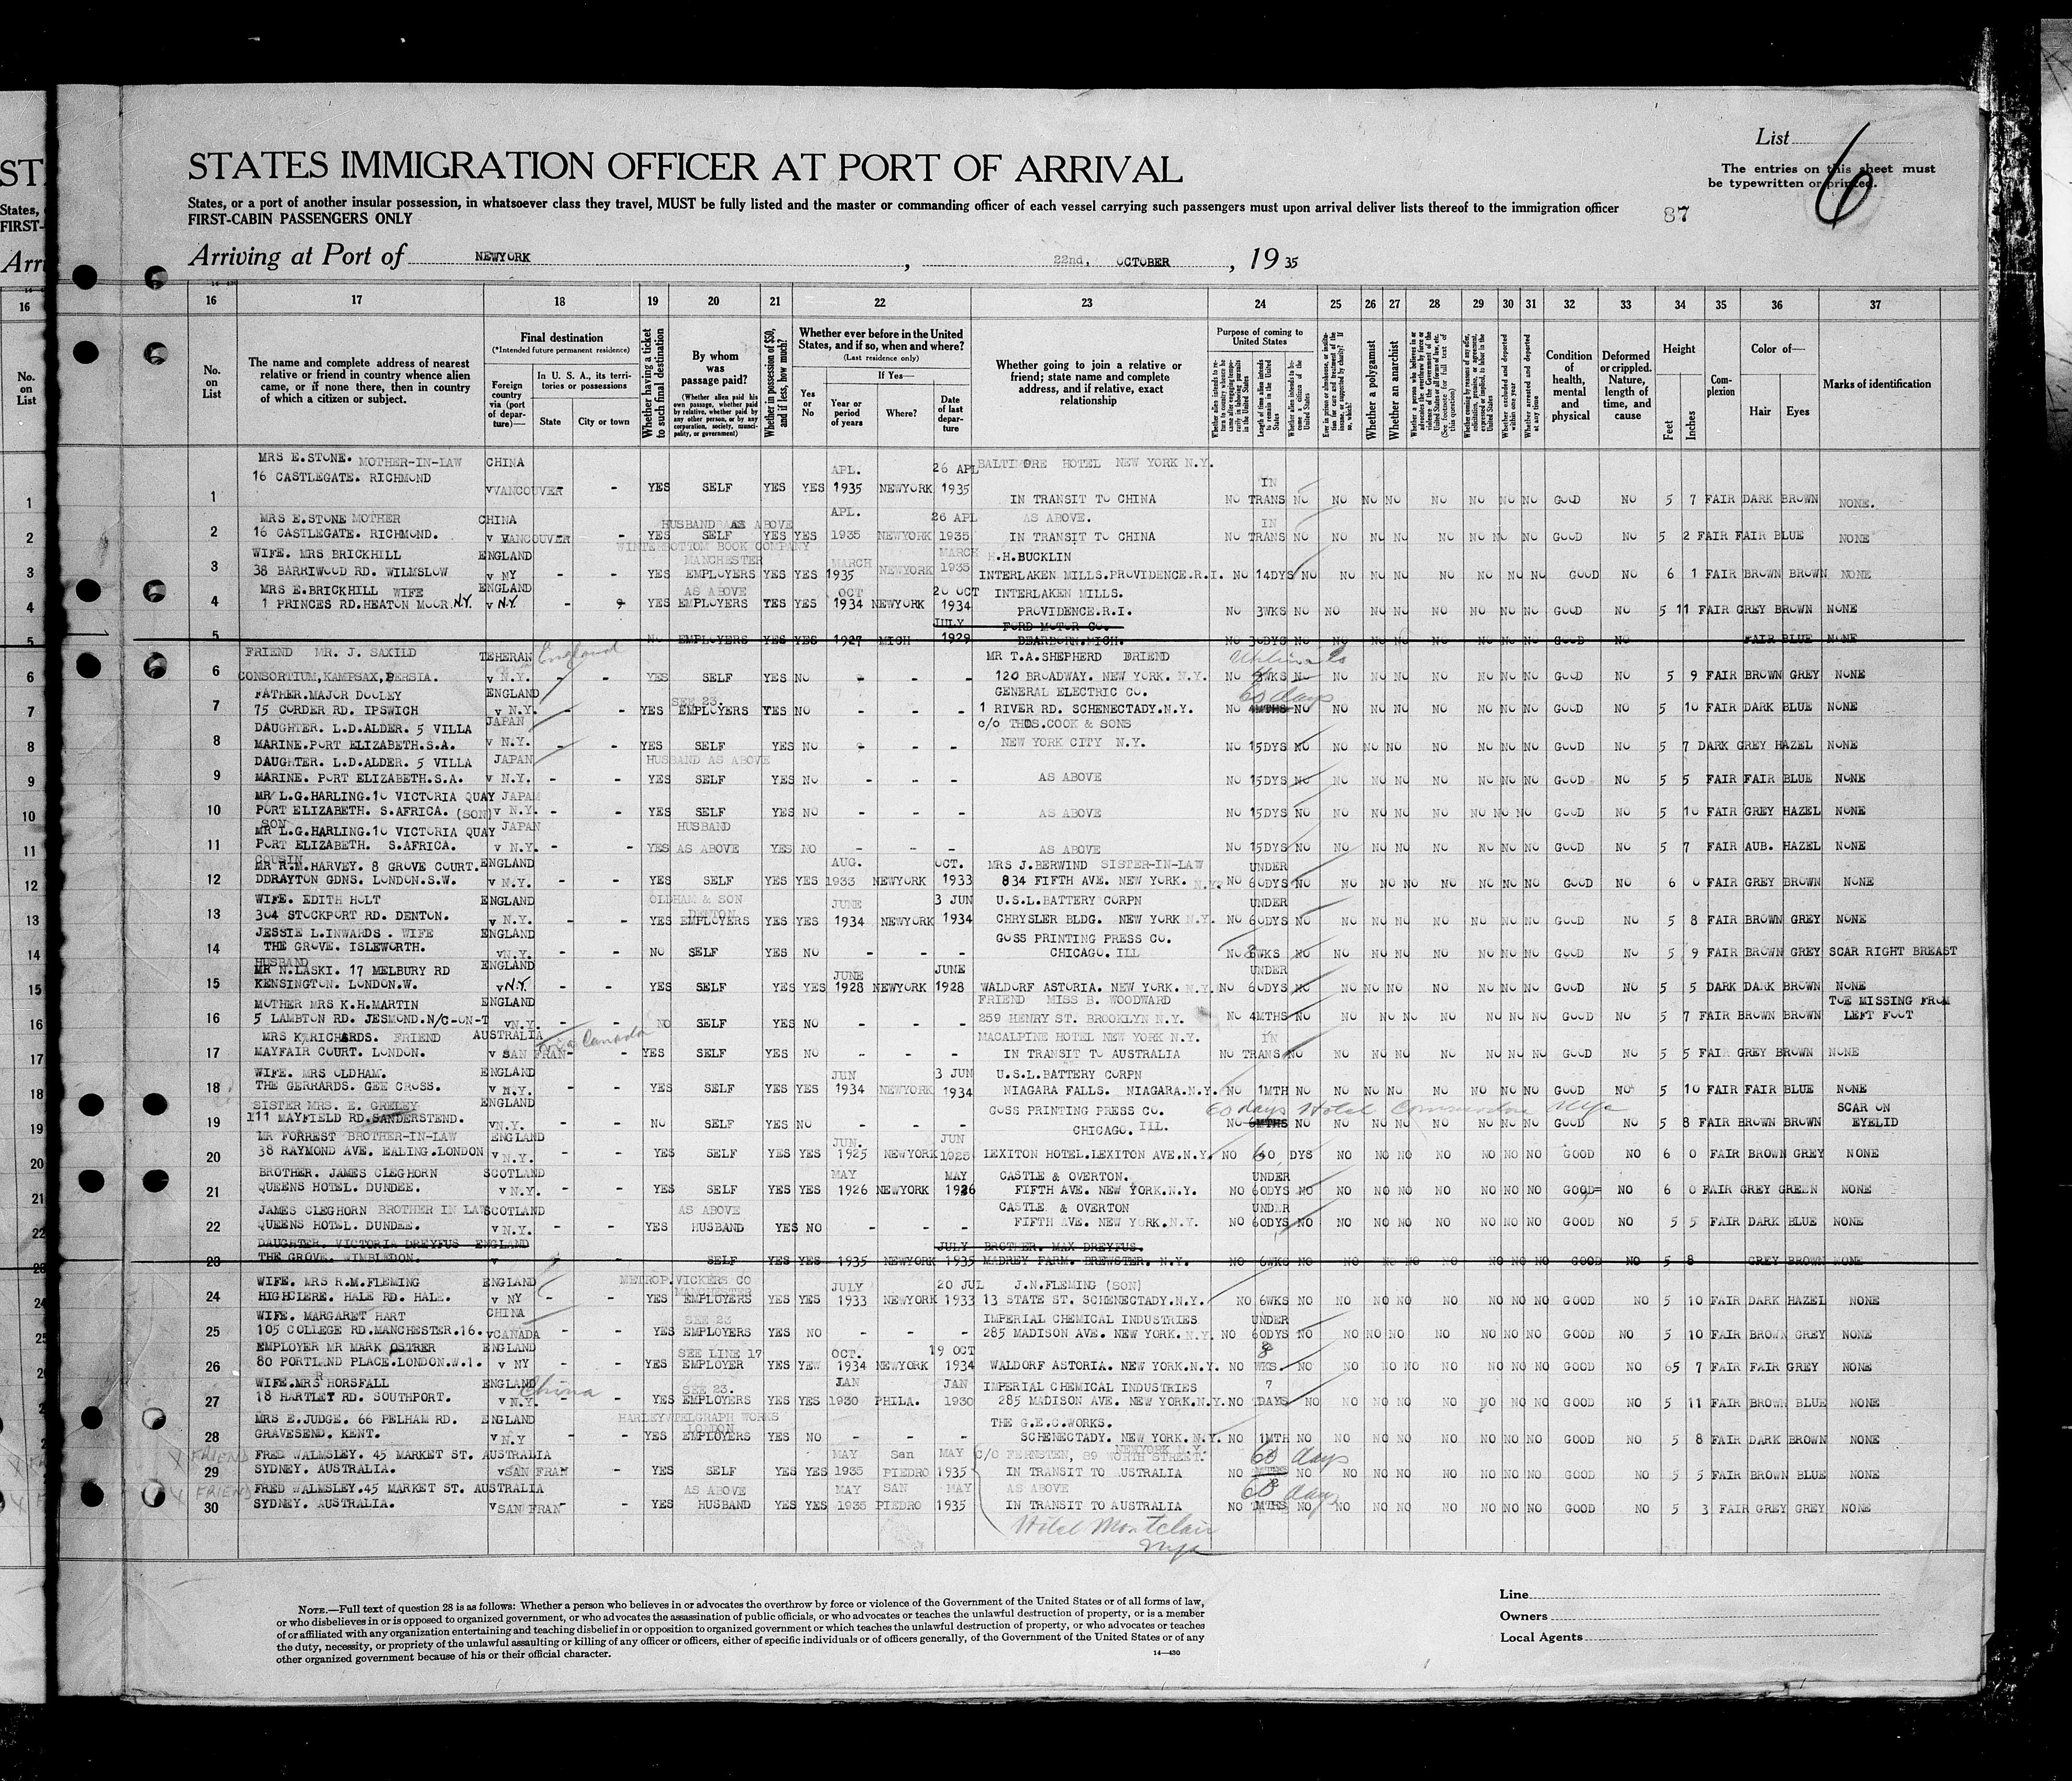 List
6
The entries on this sheet must
be typewritten or printed.
87
STATES IMMIGRATION OFFICER AT PORT OF ARRIVAL
States, or a port of another insular possession, in whatsoever class they travel, MUST be fully listed and the master or commanding officer of each vessel carrying such passengers must upon arrival deliver lists thereof to the immigration officer
FIRST-CABIN PASSENGERS ONLY
Arriving at Port of NEWYORK, 22nd. OCTOBER, 19 35
16 17 18 19 20 21 22 23 24 25 26 27 28 29 30 31 32 33 34 35 36 37
No. on List
The name and complete address of nearest relative or friend in country whence alien came, or if none there, then in country of which a citizen or subject.
Final destination
(*Intended future permanent residence)
Foreign country via (port of departure)—
In U. S. A., its territories or possessions
State
City or town
Whether having a ticket to such final destination
By whom was passage paid?
(Whether alien paid his own passage, whether paid by relative, whether paid by any other person, or by any corporation, society, municipality, or government)
Whether in possession of $50, and if less, how much?
Whether ever before in the United States, and if so, when and where?
(Last residence only)
If Yes—
Yes or No
Year or period of years
Where?
Date of last departure
Whether going to join a relative or friend; state name and complete address, and if relative, exact relationship
Purpose of coming to United States
Whether a polygamist
Whether an anarchist
Condition of health, mental and physical
Deformed or crippled. Nature, length of time, and cause
Height
Feet
Inches
Complexion
Color of—
Hair
Eyes
Marks of identification
MRS E.STONE. MOTHER-IN-LAW CHINA APL. 26 APL BALTIMORE HOTEL NEW YORK N.Y. IN
1 16 CASTLEGATE. RICHMOND v VANCOUVER - - YES SELF YES YES 1935 NEWYORK 1935 IN TRANSIT TO CHINA NO TRANS NO NO NO NO NO NO NO NO GOOD NO 5 7 FAIR DARK BROWN NONE.
MRS E.STONE MOTHER CHINA HUSBAND AS ABOVE APL. 26 APL AS ABOVE. IN
2 16 CASTLEGATE. RICHMOND. v VANCOUVER - - YES SELF YES YES 1935 NEWYORK 1935 IN TRANSIT TO CHINA NO TRANS NO NO NO NO NO NO NO NO GOOD NO 5 2 FAIR FAIR BLUE NONE
WIFE. MRS BRICKHILL ENGLAND WINTERBOTTOM BOOK COMPANY MANCHESTER MARCH MARCH H.H.BUCKLIN
3 38 BARRIWOOD RD. WILMSLOW v NY - - YES EMPLOYERS YES YES 1935 NEWYORK 1935 INTERLAKEN MILLS.PROVIDENCE.R.I. NO 14DYS NO NO NO NO NO NO NO NO GOOD NO 6 1 FAIR BROWN BROWN NONE
MRS E.BRICKHILL WIFE ENGLAND AS ABOVE OCT 20 OCT INTERLAKEN MILLS.
4 1 PRINCES RD.HEATON MOOR. N.Y. v N.Y. - YES EMPLOYERS YES YES 1934 NEWYORK 1934 PROVIDENCE.R.I. NO 3WKS NO NO NO NO NO NO NO NO GOOD NO 5 11 FAIR GREY BROWN NONE
JULY FORD MOTOR CO.
5 NO EMPLOYERS YES YES 1927 MICH 1929 DEARBORN.MICH. NO 30DYS NO NO NO NO NO NO NO NO GOOD NO FAIR BLUE NONE
FRIEND MR. J. SAXILD TEHERAN England MR T.A.SHEPHERD FRIEND
6 CONSORTIUM,KAMPSAX,PERSIA. v N.Y. YES SELF YES NO - - - 120 BROADWAY. NEW YORK. N.Y. NO WKS NO NO NO NO NO NO NO NO GOOD NO 5 9 FAIR BROWN GREY NONE
FATHER.MAJOR DOOLEY ENGLAND SEE 23. GENERAL ELECTRIC CO. 60 days
7 75 CORDER RD. IPSWICH v N.Y. - - YES EMPLOYERS YES NO - - - 1 RIVER RD. SCHENECTADY.N.Y. NO MTHS NO NO NO NO NO NO NO NO GOOD NO 5 10 FAIR DARK BLUE NONE
DAUGHTER. L.D.ALDER. 5 VILLA JAPAN c/o THOS.COOK & SONS
8 MARINE.PORT ELIZABETH.S.A. v N.Y. - - YES SELF YES NO - - - NEW YORK CITY N.Y. NO 15DYS NO NO NO NO NO NO NO NO GOOD NO 5 7 DARK GREY HAZEL NONE
DAUGHTER. L.D.ALDER. 5 VILLA JAPAN HUSBAND AS ABOVE
9 MARINE. PORT ELIZABETH.S.A. v N.Y. - - YES SELF YES NO - - - AS ABOVE NO 15DYS NO NO NO NO NO NO NO NO GOOD NO 5 5 FAIR FAIR BLUE NONE
MR L.G.HARLING.10 VICTORIA QUAY JAPAN
10 PORT ELIZABETH. S.AFRICA. (SON) v N.Y. - - YES SELF YES NO - - - AS ABOVE NO 15DYS NO NO NO NO NO NO NO NO GOOD NO 5 10 FAIR GREY HAZEL NONE
SON
MR L.G.HARLING.10 VICTORIA QUAY JAPAN HUSBAND
11 PORT ELIZABETH. S.AFRICA. v N.Y. - - YES AS ABOVE YES NO - - - AS ABOVE NO 15DYS NO NO NO NO NO NO NO NO GOOD NO 5 7 FAIR AUB. HAZEL NONE
COUSIN
MR R.M.HARVEY. 8 GROVE COURT. ENGLAND AUG. OCT. MRS J.BERWIND SISTER-IN-LAW UNDER
12 DDRAYTON GDNS. LONDON.S.W. v N.Y. - - YES SELF YES YES 1933 NEWYORK 1933 834 FIFTH AVE. NEW YORK. N.Y. NO 60DYS NO NO NO NO NO NO NO NO GOOD NO 6 0 FAIR GREY BROWN NONE
WIFE. EDITH HOLT ENGLAND OLDHAM & SON DENTON JUNE 3 JUN U.S.L.BATTERY CORPN UNDER
13 304 STOCKPORT RD. DENTON. v N.Y. - - YES EMPLOYERS YES YES 1934 NEWYORK 1934 CHRYSLER BLDG. NEW YORK N.Y. NO 60DYS NO NO NO NO NO NO NO NO GOOD NO 5 8 FAIR BROWN GREY NONE
JESSIE L.INWARDS. WIFE ENGLAND GOSS PRINTING PRESS CO.
14 THE GROVE. ISLEWORTH. v N.Y. - - NO SELF YES NO - - - CHICAGO. ILL NO WKS NO NO NO NO NO NO NO NO GOOD NO 5 9 FAIR BROWN GREY SCAR RIGHT BREAST
HUSBAND
MR N.LASKI. 17 MELBURY RD ENGLAND JUNE JUNE UNDER
15 KENSINGTON. LONDON.W. v N.Y. - - YES SELF YES YES 1928 NEWYORK 1928 WALDORF ASTORIA. NEW YORK. N.Y. NO 60DYS NO NO NO NO NO NO NO NO GOOD NO 5 5 DARK DARK BROWN NONE
MOTHER MRS K.H.MARTIN ENGLAND FRIEND MISS B. WOODWARD TOE MISSING FROM
16 5 LAMBTON RD. JESMOND.N/C-ON-T v N.Y. - - NO SELF YES NO - - - 259 HENRY ST. BROOKLYN N.Y. NO 4MTHS NO NO NO NO NO NO NO NO GOOD NO 5 7 FAIR BROWN BROWN LEFT FOOT
MRS K.RICHARDS. FRIEND AUSTRALIA via Canada MACALPINE HOTEL NEW YORK N.Y. IN
17 MAYFAIR COURT. LONDON. v SAN FRAN- - YES SELF YES NO - - - IN TRANSIT TO AUSTRALIA NO TRANS NO NO NO NO NO NO NO NO GOOD NO 5 5 FAIR GREY BROWN NONE
WIFE. MRS OLDHAM. ENGLAND JUN 3 JUN U.S.L.BATTERY CORPN
18 THE GERRARDS. GEE CROSS. v N.Y. - - YES SELF YES YES 1934 NEWYORK 1934 NIAGARA FALLS. NIAGARA.N.Y. NO 1MTH NO NO NO NO NO NO NO NO GOOD NO 5 10 FAIR FAIR BLUE NONE
SISTER MRS. E. GRELEY ENGLAND GOSS PRINTING PRESS CO. 60 days Hotel Commodore NYc SCAR ON
19 111 MAYFIELD RD.SANDERSTEND. v N.Y. - - NO SELF YES NO - - - CHICAGO. ILL. NO 6MTHS NO NO NO NO NO NO NO NO GOOD NO 5 8 FAIR BROWN BROWN EYELID
MR FORREST BROTHER-IN-LAW ENGLAND JUN. JUN
20 38 RAYMOND AVE. EALING.LONDON v N.Y. - - YES SELF YES YES 1925 NEWYORK 1925 LEXITON HOTEL.LEXITON AVE.N.Y. NO 60 DYS NO NO NO NO NO NO NO GOOD NO 6 0 FAIR BROWN GREY NONE
BROTHER. JAMES CLEGHORN SCOTLAND MAY MAY CASTLE & OVERTON. UNDER
21 QUEENS HOTEL. DUNDEE. v N.Y. - - YES SELF YES YES 1926 NEWYORK 1926 FIFTH AVE. NEW YORK.N.Y. NO 60DYS NO NO NO NO NO NO NO NO GOOD= NO 6 0 FAIR GREY GREEN NONE
JAMES CLEGHORN BROTHER IN LAW SCOTLAND AS ABOVE CASTLE & OVERTON UNDER
22 QUEENS HOTEL. DUNDEE. v N.Y. - - YES HUSBAND YES NO - - - FIFTH AVE. NEW YORK.N.Y. NO 60DYS NO NO NO NO NO NO NO NO GOOD NO 5 5 FAIR DARK BLUE NONE
DAUGHTER. VICTORIA DREYFUS ENGLAND JULY BROTHER. MAX DREYFUS.
23 THE GROVE. WIMBLEDON. v SELF YES YES 1935 NEWYORK 1935 MADREY FARM. BREWSTER. N.Y. NO 6WKS NO NO NO NO NO NO NO NO GOOD NO 5 8 GREY BROWN NONE
WIFE. MRS R.M.FLEMING ENGLAND METROP.VICKERS CO MANCHESTER JULY 20 JUL J.N.FLEMING (SON)
24 HIGHCLERE. HALE RD. HALE. v NY - - YES EMPLOYERS YES YES 1933 NEWYORK 1933 13 STATE ST. SCHENECTADY.N.Y. NO 6WKS NO NO NO NO NO NO NO NO GOOD NO 5 10 FAIR DARK HAZEL NONE
WIFE. MARGARET HART CHINA SEE 23 IMPERIAL CHEMICAL INDUSTRIES UNDER
25 105 COLLEGE RD.MANCHESTER.16. v CANADA - - YES EMPLOYERS YES NO - - - 285 MADISON AVE. NEW YORK. N.Y. NO 60DYS NO NO NO NO NO NO NO NO GOOD NO 5 10 FAIR BROWN GREY NONE
EMPLOYER MR MARK OSTRER ENGLAND SEE LINE 17 OCT. 19 OCT 8
26 80 PORTLAND PLACE.LONDON.W.1. v NY - - YES EMPLOYER YES YEW 1934 NEWYORK 1934 WALDORF ASTORIA. NEW YORK.N.Y. NO WKS. NO NO NO NO NO NO NO NO GOOD NO 65 7 FAIR FAIR GREY NONE
WIFE.MRS R HORSFALL ENGLAND China SEE 23. JAN JAN IMPERIAL CHEMICAL INDUSTRIES 7
27 18 HARTLEY RD. SOUTHPORT. v N.Y. - YES EMPLOYERS YES YES 1930 PHILA. 1930 285 MADISON AVE. NEW YORK.N.Y. NO DAYS NO NO NO NO NO NO NO NO GOOD NO 5 11 FAIR BROWN BLUE NONE
MRS E.JUDGE. 66 PELHAM RD. ENGLAND HARLEY TELGRAPH WORKS LONDON THE G.E.C.WORKS.
28 GRAVESEND. KENT. v N.Y - - YES EMPLOYERS YES NO - - - SCHENECTADY. NEW YORK.N.Y. NO 1MTH NO NO NO NO NO NO NO NO GOOD NO 5 8 FAIR DARK BROWN NONE
FRIEND FRED WALMSLEY. 45 MARKET ST. AUSTRALIA MAY San MAY C/O FERNSTEN, 89 WORTH STREET. NEWYORK N.Y. 60 days
29 SYDNEY. AUSTRALIA. v SAN FRAN - YES SELF YES YES 1935 PIEDRO 1935 IN TRANSIT TO AUSTRALIA NO MTHS NO NO NO NO NO NO NO NO GOOD NO 5 5 FAIR BROWN BLUE NONE
FRIEND FRED WALMSLEY.45 MARKET ST. AUSTRALIA AS ABOVE MAY SAN MAY AS ABOVE 60 days
30 SYDNEY. AUSTRALIA. v SAN FRAN - YES HUSBAND YES YES 1935 PIEDRO 1935 IN TRANSIT TO AUSTRALIA NO MTHS NO NO NO NO NO NO NO NO GOOD NO 5 3 FAIR GREY GREY NONE
Hotel Montclair
Nyc
NOTE.—Full text of question 28 is as follows: Whether a person who believes in or advocates the overthrow by force or violence of the Government of the United States or of all forms of law,
or who disbelieves in or is opposed to organized government, or who advocates the assassination of public officials, or who advocates or teaches the unlawful destruction of property, or is a member
of or affiliated with any organization entertaining and teaching disbelief in or opposition to organized government or which teaches the unlawful destruction of property, or who advocates or teaches
the duty, necessity, or propriety of the unlawful assaulting or killing of any officer or officers, either of specific individuals or of officers generally, of the Government of the United States or of any
other organized government because of his or their official character.
14—430
Line
Owners
Local Agents